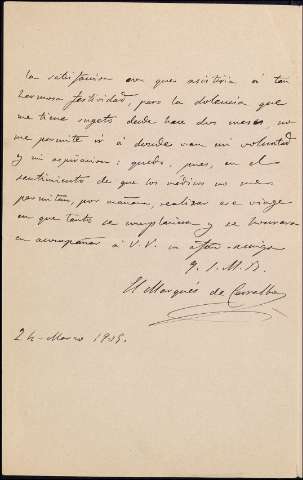 la satisfaccion con que asistiria á tan
hermosa festividad, pero la dolencia que
me tiene sugeto desde hace dos meses no
me permite ir á donde van mi voluntad
y mi aspiracion: quedo, pues, en el
sentimiento de que los médicos no me
permitan, por mañana, realizar ese viage
en que tanto se complaceria y se honraria
en acompañar á V.V. su afmo amigo
q. s. M. B.
El Marqués de
24-Marzo 1905.